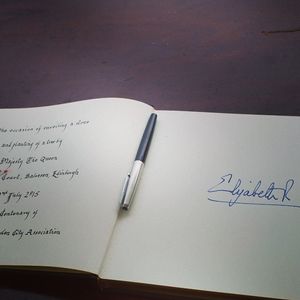 the occasion of unveiling a stone
and planting of a tree by
Majesty The Queen
Court, Saughton, Edinburgh
July 2015
Centenary of
City Association
Elizabeth R